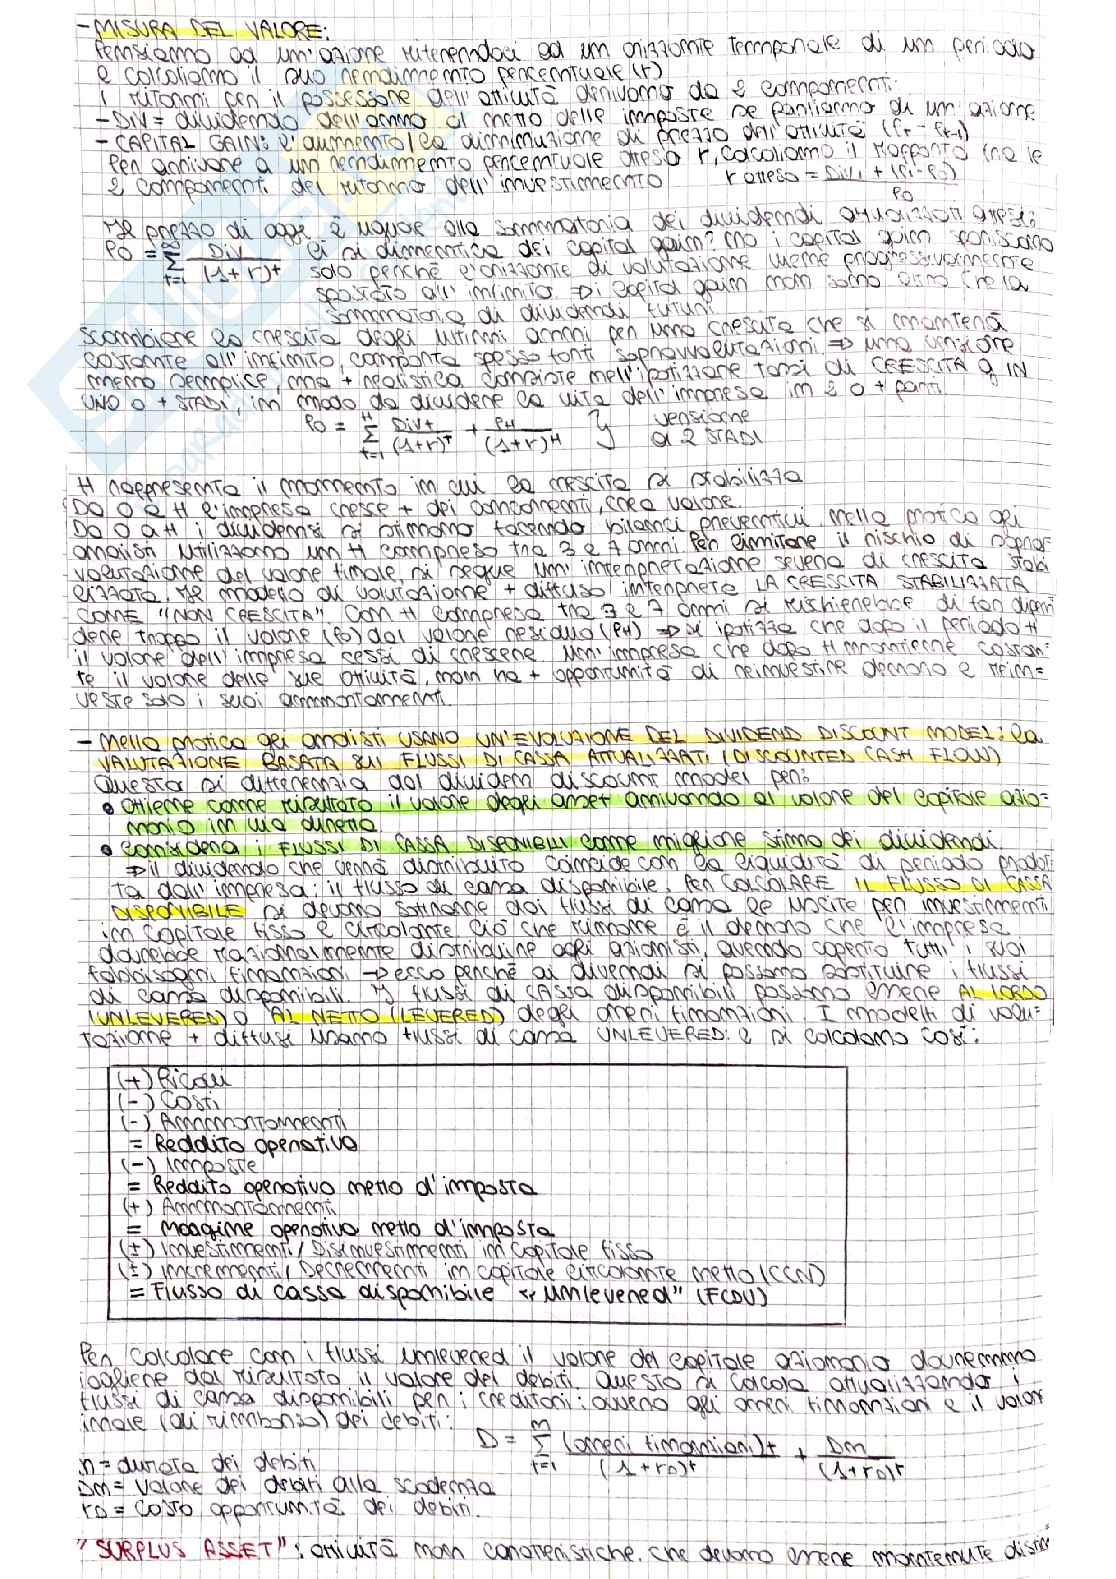 - MISURA DEL VALORE:
Pensiamo ad un'azione ritenendoci ad un orizzonte temporale di un periodo
e calcoliamo il suo rendimento percentuale (r)
I ritorni per il possessore dell'attività derivano da 2 componenti:
- DIV = dividendo dell'anno al netto delle imposte se parliamo di un azione
- CAPITAL GAIN: l'aumento/la diminuzione di prezzo dell'attività (Pt - Pt-1)
Per arrivare a un rendimento percentuale atteso r, calcoliamo il rapporto tra le
2 componenti del ritorno dell'investimento r atteso = Div1 + (P1 - P0) / P0
Il prezzo di oggi è uguale alla sommatoria dei dividendi attualizzati attesi:
P0 = ∞ Σ t=1 Div / (1+r)^t ci si dimentica dei capital gain? No i capital gain spariscono
solo perché l'orizzonte di valutazione viene progressivamente
spostato all'infinito ⇒ i capital gain non sono altro che la
sommatoria di dividendi futuri
Scambiare la crescita degli ultimi anni per una crescita che si manterrà
costante all'infinito, comporta spesso tanti sopravvalutazioni ⇒ una versione
meno semplice, ma + realistica consiste nell'ipotizzare tassi di CRESCITA g IN
UNO O + STADI, in modo da dividere la vita dell'impresa in 2 o + parti
P0 = H Σ t=1 Divt / (1+r)^t + PH / (1+r)^H } versione a 2 STADI
H rappresenta il momento in cui la crescita si stabilizza
Da 0 a H l'impresa cresce + dei concorrenti, crea valore.
Da 0 a H i dividensi si stimano facendo bilanci preventivi, nella pratica gli
analisti utilizzano un H compreso tra 3 e 7 anni. Per limitare il rischio di soprav-
valutazione del valore finale, si segue un'interpretazione severa di crescita stabi
lizzata. Il modello di valutazione + diffuso interpreta LA CRESCITA STABILIZZATA
COME "NON CRESCITA". Con H compreso tra 3 e 7 anni si rischierebbe di far dipen
dere troppo il valore (P0) dal valore residuo (PH) ⇒ si ipotizza che dopo il periodo H
il valore dell'impresa cessi di crescere. Un'impresa che dopo H mantiene costan-
te il valore delle sue attività, non ha + opportunità di reinvestire denaro e rein=
veste solo i suoi ammortamenti.
- Nella pratica gli analisti USANO UN'EVOLUZIONE DEL DIVIDEND DISCOUNT MODEL: la
VALUTAZIONE BASATA SUI FLUSSI DI CASSA ATTUALIZZATI (DISCOUNTED CASH FLOW)
Questa si differenzia dal dividen discount model per:
• ottiene come risultato il valore degli asset arrivando al valore del capitale azio=
nario in via diretta
• considera i FLUSSI DI CASSA DISPONIBILI come migliore stima dei dividendi.
⇒ il dividendo che verrà distribuito coincide con la liquidità di periodo prodot
ta dall'impresa: il flusso di cassa disponibile. Per CALCOLARE IL FLUSSO DI CASSA
DISPONIBILE si devono sottrarre dai flussi di cassa le uscite per investimenti
in capitale fisso e circolante ciò che rimane è il denaro che l'impresa
dovrebbe razionalmente distribuire agli azionisti, avendo coperto tutti i suoi
fabbisogni finanziari → ecco perché ai divendi si possono sostituire i flussi
di cassa disponibili. I flussi di cassa disponibili possono essere AL LORDO
(UNLEVERED) O AL NETTO (LEVERED) degli oneri finanziari I modelli di valu=
tazione + diffusi usano flussi di cassa UNLEVERED. e si calcolano così:
(+) Ricavi
(-) Costi
(-) Ammortamenti
= Reddito operativo
(-) Imposte
= Reddito operativo netto d'imposta
(+) Ammortamenti
= Margine operativo netto d'imposta
(±) Investimenti / Disinvestimenti in capitale fisso
(±) Incrementi / Decrementi in capitale circolante netto (CCN)
= Flusso di cassa disponibile "unlevered" (FCDU)
Per calcolare con i flussi unlevered il valore del capitale azionario dovremmo
togliere dal risultato il valore dei debiti. Questo si calcola attualizzando i
flussi di cassa disponibili per i creditori: ovvero gli oneri finanziari e il valor
inale (di rimborso) dei debiti: D = n Σ t=1 (oneri finanziari)t / (1+rD)^t + Dn / (1+rD)^t
n = durata dei debiti
Dn = valore dei debiti alla scadenza
rD = costo opportunità dei debiti.
"SURPLUS ASSET": attività non caratteristiche. che devono essere mantenute distin